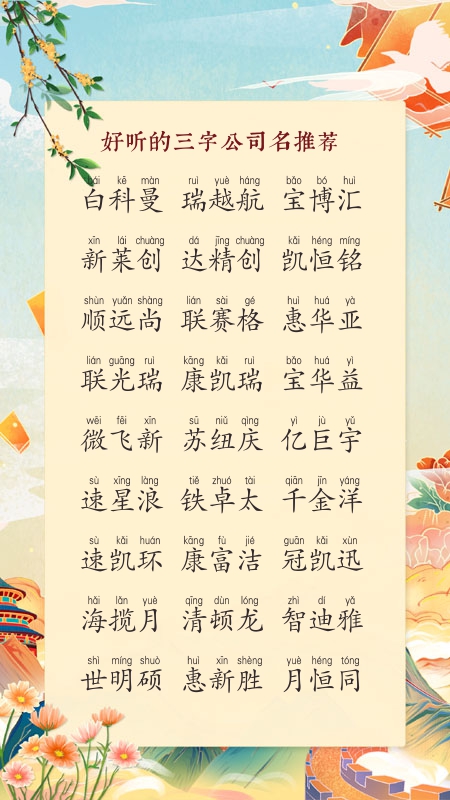 好听的三字公司名推荐
bái kē màn ruì yuè háng bǎo bó huì
白科曼 瑞越航 宝博汇
xīn lái chuàng dá jīng chuàng kǎi héng míng
新莱创 达精创 凯恒铭
shùn yuǎn shàng lián sài gé huì huá yà
顺远尚 联赛格 惠华亚
lián guāng ruì kāng kǎi ruì bǎo huá yì
联光瑞 康凯瑞 宝华益
wēi fēi xīn sū niǔ qìng yì jù yǔ
微飞新 苏纽庆 亿巨宇
sù xīng làng tiě zhuó tài qiān jīn yáng
速星浪 铁卓太 千金洋
sù kǎi huán kāng fù jié guān kǎi xùn
速凯环 康富洁 冠凯迅
hǎi lǎn yuè qīng dùn lóng zhì dí yǎ
海揽月 清顿龙 智迪雅
shì míng shuò huì xīn shèng yuè héng tóng
世明硕 惠新胜 月恒同